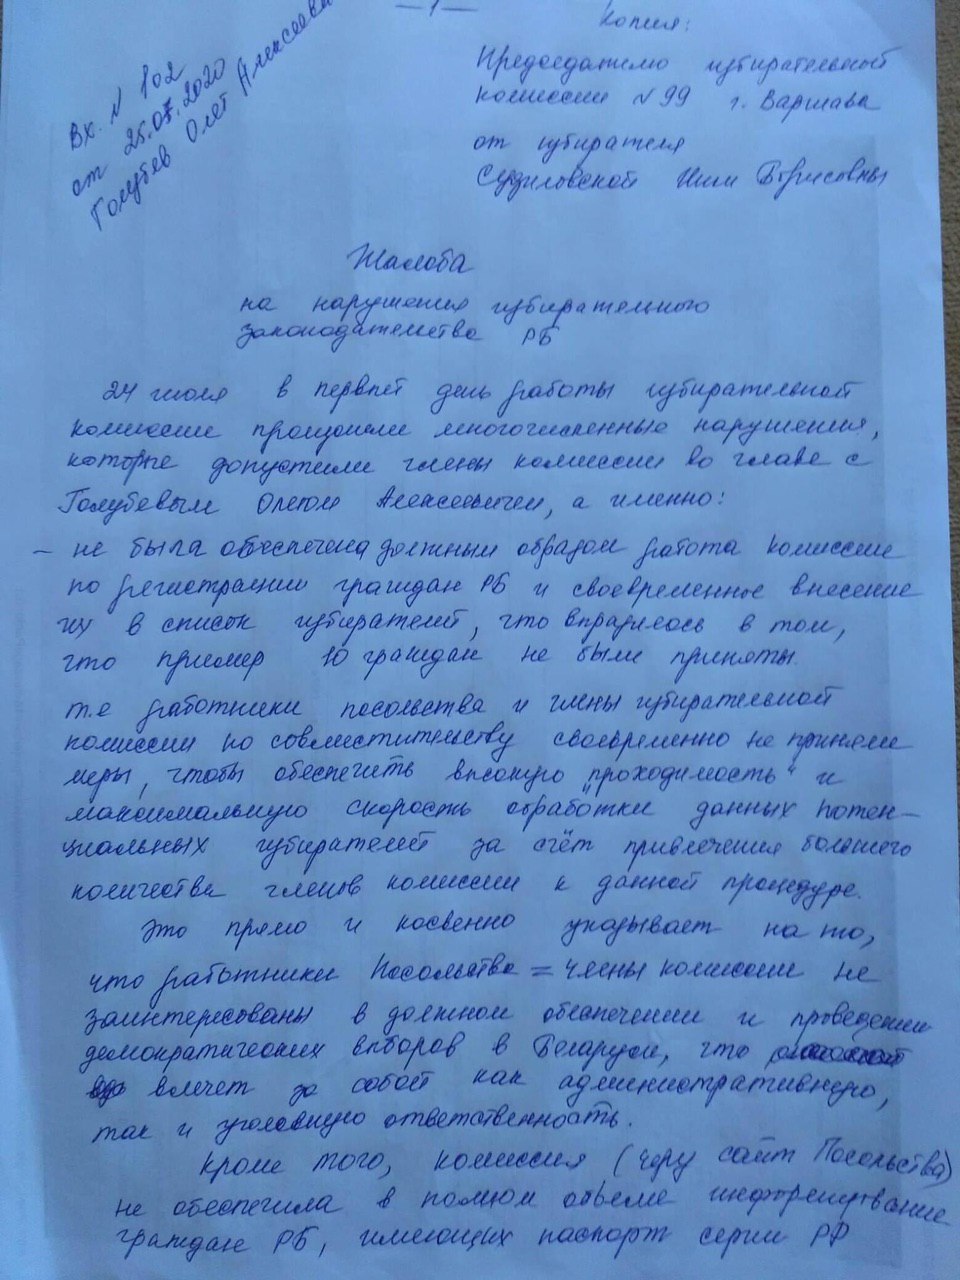 — 1 —
Копия:
Вх. N 102
от 25.07.2020
Голубев Олег Алексеевич
Председателю избирательной
комиссии N 99 г. Варшава
от избирателя
Инны Борисовны
Жалоба
на нарушения избирательного
законодательства РБ
24 июля в первый день работы избирательной
комиссии произошли многочисленные нарушения,
которые допустили члены комиссии во главе с
Голубевым Олегом Алексеевичем, а именно:
– не была обеспечена должным образом работа комиссии
по регистрации граждан РБ и своевременное внесение
их в список избирателей, что выразилось в том,
что пример 10 граждан не были приняты.
т.е работники посольства и члены избирательной
комиссии по совместительству своевременно не приняли
меры, чтобы обеспечить высокую "проходимость" и
максимальную скорость обработки данных потен-
циальных избирателей за счёт привлечения большего
количества членов комиссии к данной процедуре.
Это прямо и косвенно указывает на то,
что работники Посольства = члены комиссии не
заинтересованы в должном обеспечении и проведении
демократических выборов в Беларуси, что
влечет за собой как административную,
так и уголовную ответственность.
Кроме того, комиссия (через сайт Посольства)
не обеспечила в полном объеме информирование
граждан РБ, имеющих паспорт серии РР